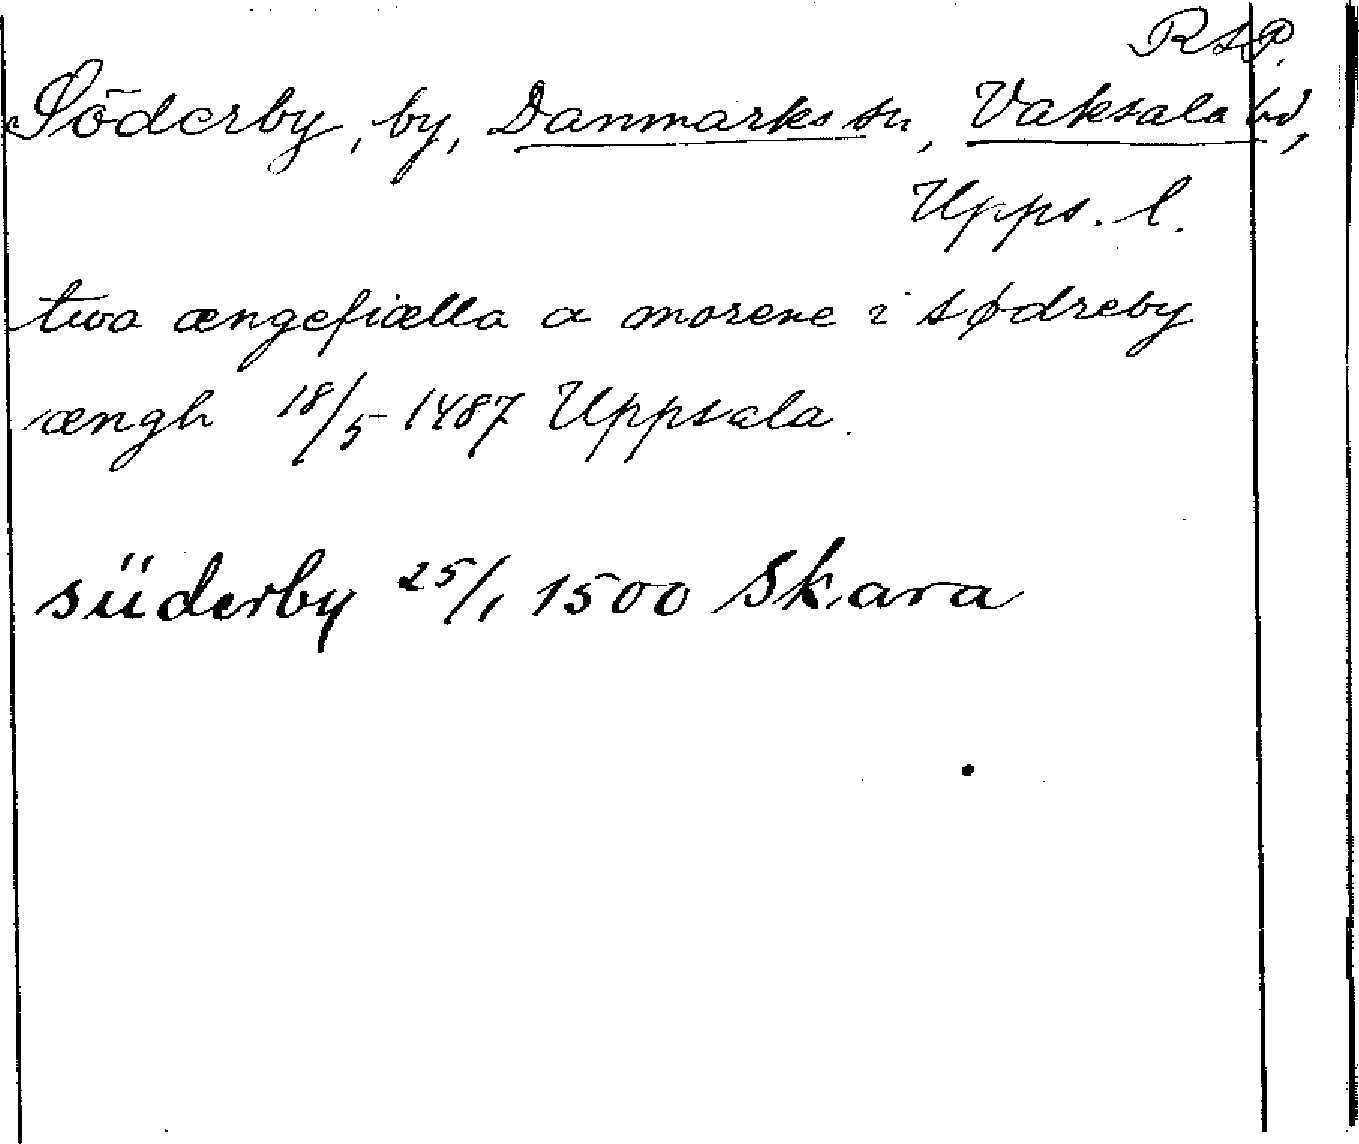 RAP.
Söderby, by, Danmarks sn, Vaksala hd,
Upps. l.
twa ængefiælla a morene i sødreby
ængh 18/5 1487 Uppsala.
süderby 25/1 1500 Skara